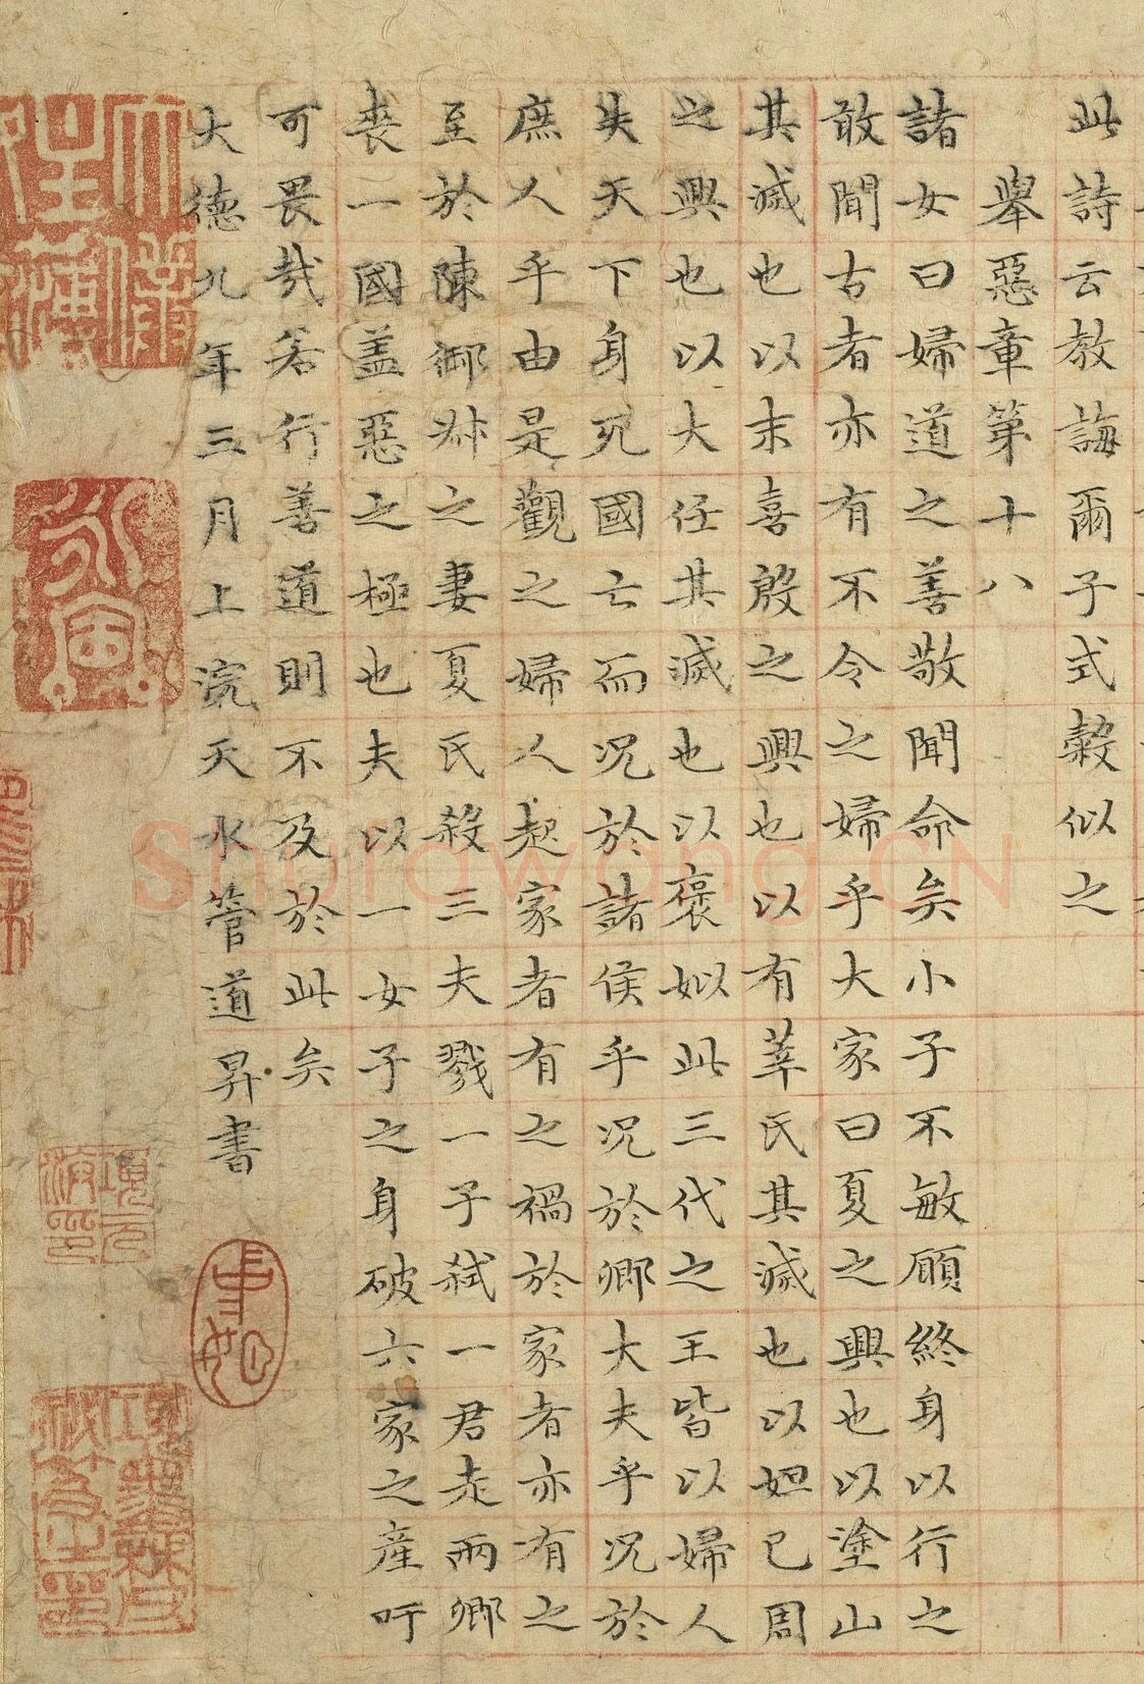 此詩云教誨爾子式穀似之
舉惡章第十八
諸女曰婦道之善敬聞命矣小子不敏願終身以行之
敢聞古者亦有不令之婦乎大家曰夏之興也以塗山
其滅也以末喜殷之興也以有莘氏其滅也以妲己周
之興也以大任其滅也以褒姒此三代之王皆以婦人
失天下身死國亡而況於諸侯乎況於卿大夫乎況於
庶人乎由是觀之婦人起家者有之禍於家者亦有之
至於陳御叔之妻夏氏殺三夫戮一子弑一君走兩卿
喪一國盖惡之極也夫以一女子之身破六家之產吁
可畏哉若行善道則不及於此矣
大德九年三月上浣天水管道昇書
項元汴印